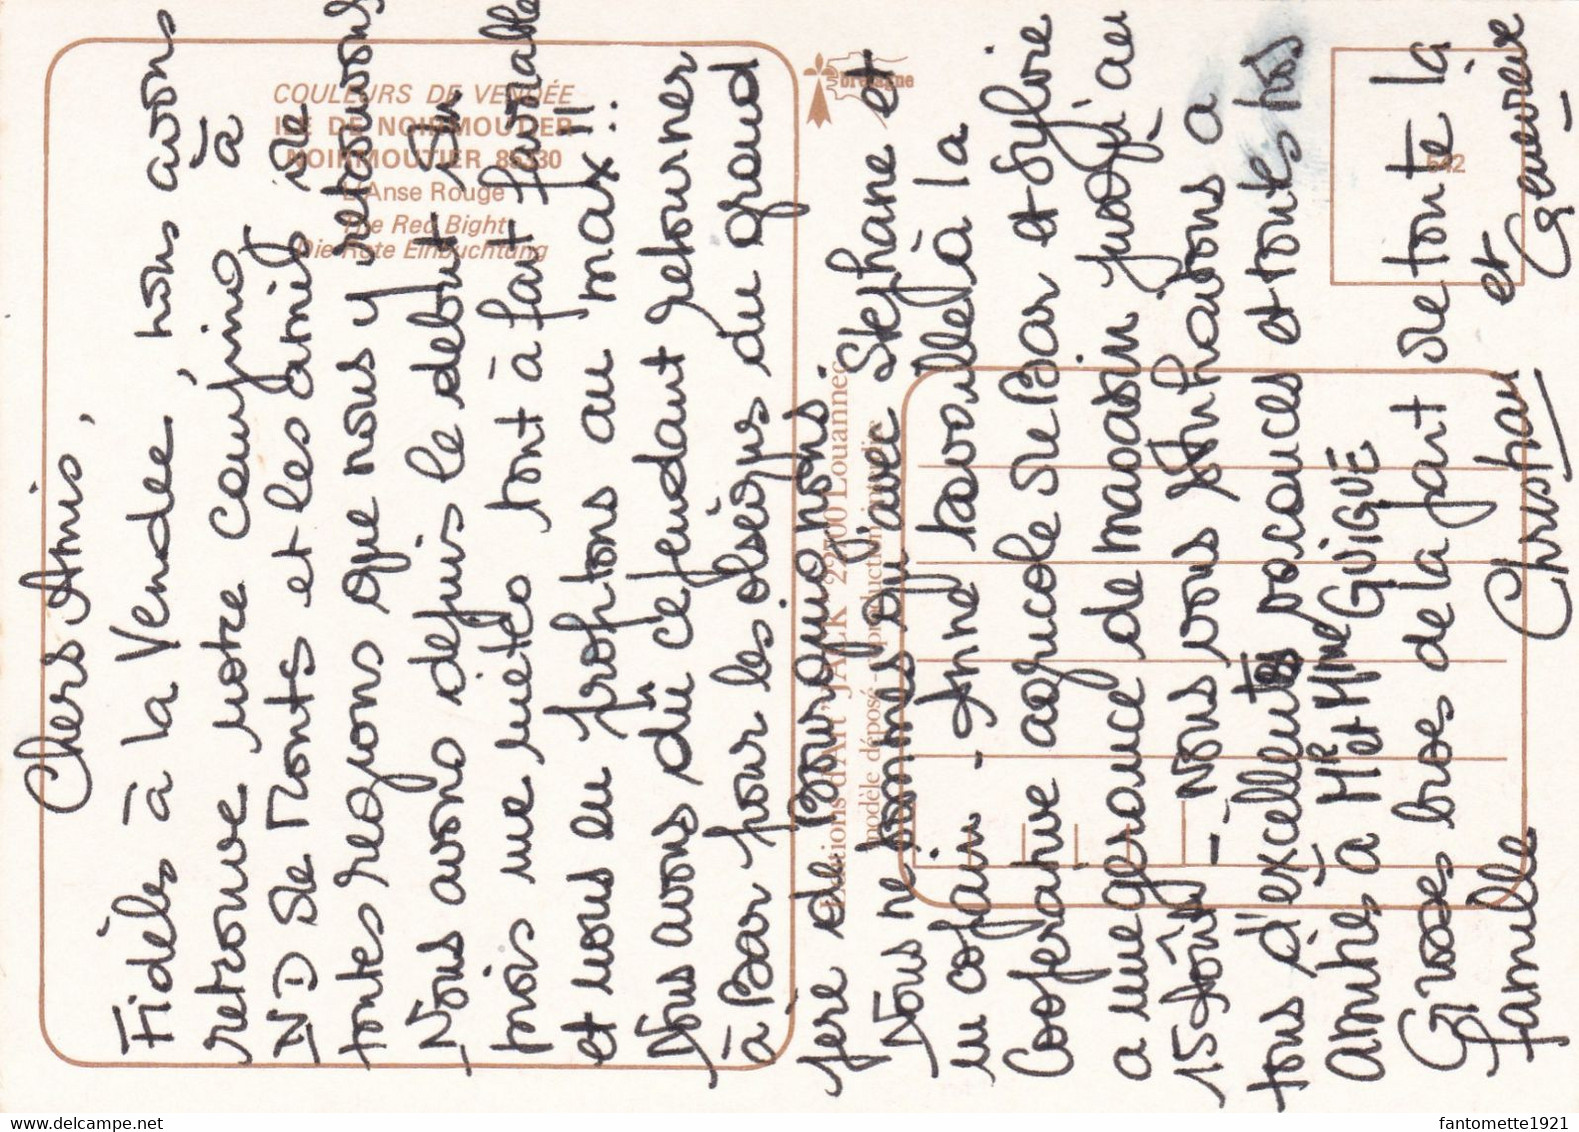 Chers Amis,
Fidèles à la Vendée, nous avons
retrouvé notre camping à
ND de Monts et les amis de
toutes régions que nous y retrouvons
Nous avons depuis le début du
mois une météo tout à fait favorable
et nous en profitons au max!!
Nous avons dû cependant retourner
à Bar pour les obsèques du grand
père de Bourguignons.
Nous ne sommes qu'avec Stéphane et
un copain - Anne travaille à la
Coopérative agricole de Bar et Sylvie
a une gérance de magasin jusqu'au
15 Août - Nous vous souhaitons a
tous d'excellentes vacances et toutes nos
amitiés à Mr et Mme GUIGUE
Grosses bises de la part de toute la
famille Christian et Geneviève
COULEURS DE VENDÉE
ILE DE NOIRMOUTIER
NOIRMOUTIER 85330
L'Anse Rouge
The Red Bight
Die Rote Einbuchtung
bretagne
542
Editions d'Art "JACK" 22700 Louannec
modèle déposé - reproduction interdite
www.delcampe.net
fantomette1921